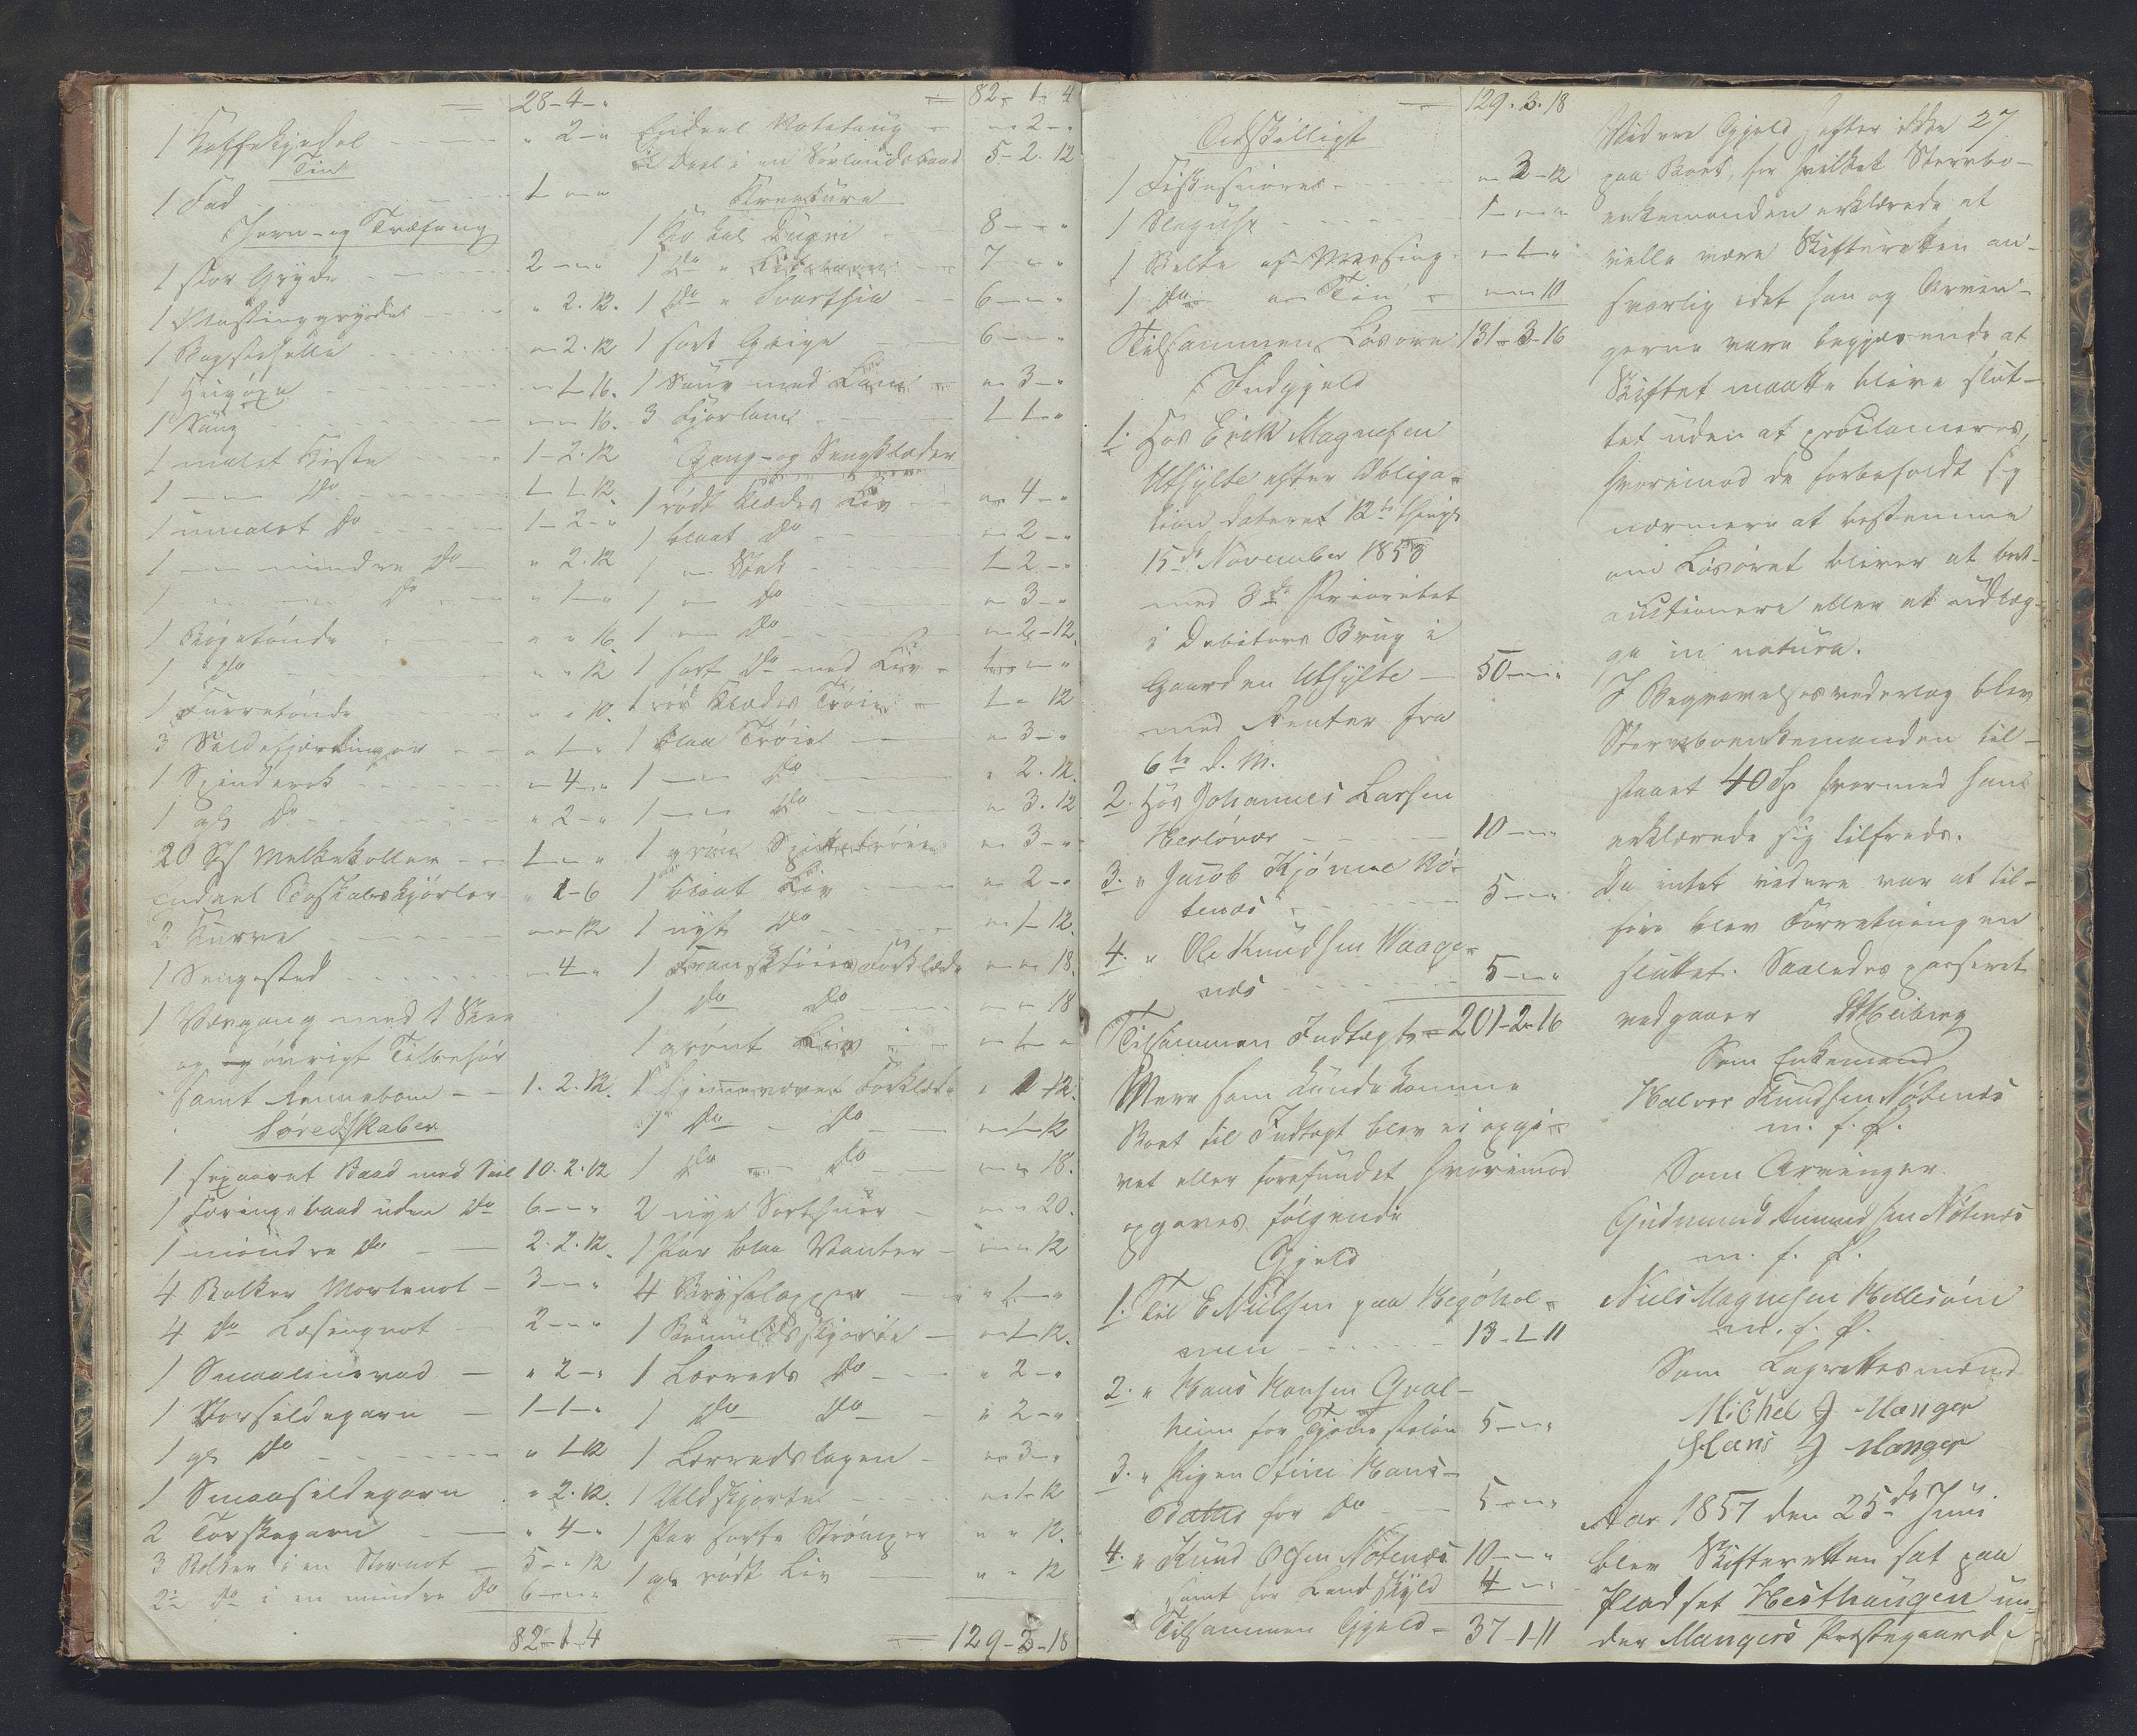 = 28-4-"
1 Kaffekjedel - - - " 2-"
Tin
1 Fad - - - 1 - " "
Jern- og Træfang
1 stor Gryde - - - 2 - " "
1 Massinggryde - - - " 2. 12.
1 Bagstehelle - - - " 2. 12
1 Huggöxe - - " 1-16.
1 Stang - - - " " 16.
1 malet Kiste - - 1-2. 12
1 — Do - - 1-1-12.
1 umalet Do - - - 1-2-"
1 — mindre Do - " 2. 12
1 — — Do - - " 1-"
1 Bigetönde - - " " 16
1 Do - - - " " 12
1 Tærretönde - - " " 12.
3 Sildefjerdinger - - " 1-"
1 Spinderok - - - " 4-"
1 gl Do - - - " 2-"
20 St Melkekoller - - 1 - " "
Endeel Boskabskjörler - " 1-6
2 Kurve - - - " " 12
1 Sengested - - - " 4-"
1 Vævgang med 1 Skee
og øvrigt Tilbehör
samt Rennebom - - 1. 2. 12.
Söredskaber
1 sexaaret Baad med Seil 10. 2. 12
1 Færingsbaad uden Do 6 - " "
1 mindre Do - - 2. 2. 12.
4 Bolker Mortenot - 3 - " "
4 Do Læsengnot - 2 - " "
1 Smaalinevad - " 2-"
1 Vorsildegarn - 1-1-"
1 gl Do - - - " 1-12
1 Smaasildegarn - " 2. 12.
2 Torskegarn - - " 4-"
3 Bolker i en Stornot - 5 - " 12
2½ Do i en mindre Do 6 - " "
82-1-4
= 82-1-4
Endeel Notetaug - " 2-"
½ Deel i en Sörlandsbaad 5-2. 12
Kreature
1 Ko kal Dugrei - - 8 - " "
1 Do " - 7 - " "
1 Do " Svartsia - - 6 - " "
1 sort Qvige - - 6 - " "
1 Sau med Lam - " 3-"
3 Fjorlam - - 1-1-"
Gang- og Sengklæder
1 rödt Klædes Liv - - " 4-"
1 blaat Do - - " 2-"
1 — Stak - - - 1-2-"
1 — Do - - " 3-"
1 — Do - - " 2-12.
1 sort Do med Liv - 1 - " "
1 röd Klædes Tröie - 1 - " 12
1 blaa Tröie - - " 3-"
1 — Do - - " 2. 12.
1 — Do - - " 3. 12
1 grön Spittetröie " 3-"
1 blaat Liv - - " 2-"
1 nyt Do - - - " 1-12.
1 Fransktöies Forklæde " " 18.
1 Do Do - - " " 18
1 grönt Liv - - " 1 - "
1 hjemmevævet Forklæde " 1-12.
1 Do - Do - " 1-12
1 Do — Do - - " " 18.
2 nye Sorthuer - " " 20.
1 Par blaa Vanter - " " 12
4 Brystlapper - - " 1-"
1 Bomuldsskjorte - " 1-12.
1 Lærreds Do - - " 2-"
1 Do Do - " 2-"
1 Lærredslagen - " 3-"
1 Uldskjorte - - " 1-12
1 Par sorte Strömper " " 12.
1 gl rödt Liv - " " 12
= 129-3-18
= 129. 3. 18
Adskilligt
1 Fiskesnöre - - " 3-12
1 Slaguhr - - - 1 - " "
1 Belte af Messing " 1-"
1 Do " Tin - " " 10
Tilsammen Lösöre 131-3-16
Indgjeld
1. Hos Erik Magnesen
Utsylte efter Obliga-
tion dateret 12te thingl
15de November 1853
med 3die Prioritet
i Debitors Brug i
Gaarden Utsylte - 50 - " "
med Renter fra
6te d. M.
2. Hos Johannes Larsen
Herlövær - - 10 - " "
3. " Jacob Kjönne Nö-
tenæs - - - 5 - " "
4. " Ole Knudsen Waage-
næs - - - 5 - " "
Tilsammen Indtægt = 201-2-16
Mere som kunde komme
Boet til Indtægt blev ei opgi-
vet eller forefundet, hvorimod
opgaves følgende
Gjeld
1. Til E Nielsen paa Hegöhol-
men - - - 13-1-11
2. " Hans Hansen Qval-
heim for Tjenestelön 5 - " "
3. " Pigen Stine Hans-
datter for Do - - 5 - " "
4. " Knud Olsen Nötenæs 10 - " "
samt for Landskyld 4 - " "
Tilsammen Gjeld - 37-1-11
27
Videre Gjeld hefter ikke
paa Boet, for hvilket Stervbo-
enkemanden erklærede at
ville være Skifteretten an-
svarlig idet han og Arvin-
gerne vare begjærende at
Skiftet maatte blive slut-
tet uden at proclameres,
hvorimod de forbeholdt sig
nærmere at bestemme
om Lösöret bliver at bort-
auctionere eller at udlæg-
ge in natura.
I Begravelsesvederlag blev
Stervboenkemanden til-
staaet 40 Sp hvormed han
erklærede sig tilfreds.
Da intet videre var at til-
före blev Forretningen
sluttet. Saaledes passeret
vedgaaer Heiberg
Som Enkemand
Halvor Knudsen Nötenæs
m. f. P.
Som Arvinger
Gudmund Amundsen Nötenæs
m. f. P.
Niels Magnesen Hellesöen
m. f. P.
Som Lagrettesmænd
Michel J Manger
Hans J Manger
Aar 1857 den 25de Juni
blev Skifteretten sat paa
Pladset Hesthaugen un-
der Mangers Præstegaard i